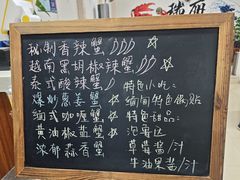 秘制香辣蟹
越南黑胡椒辣蟹
泰式酸辣蟹
爆炒葱姜蟹
缅式咖喱蟹
黄油椒盐蟹
浓郁蒜香蟹
特色小吃:
缅甸特色锅贴
特色甜品:
泡鲁达
草莓酱/汁
牛油果酱/汁